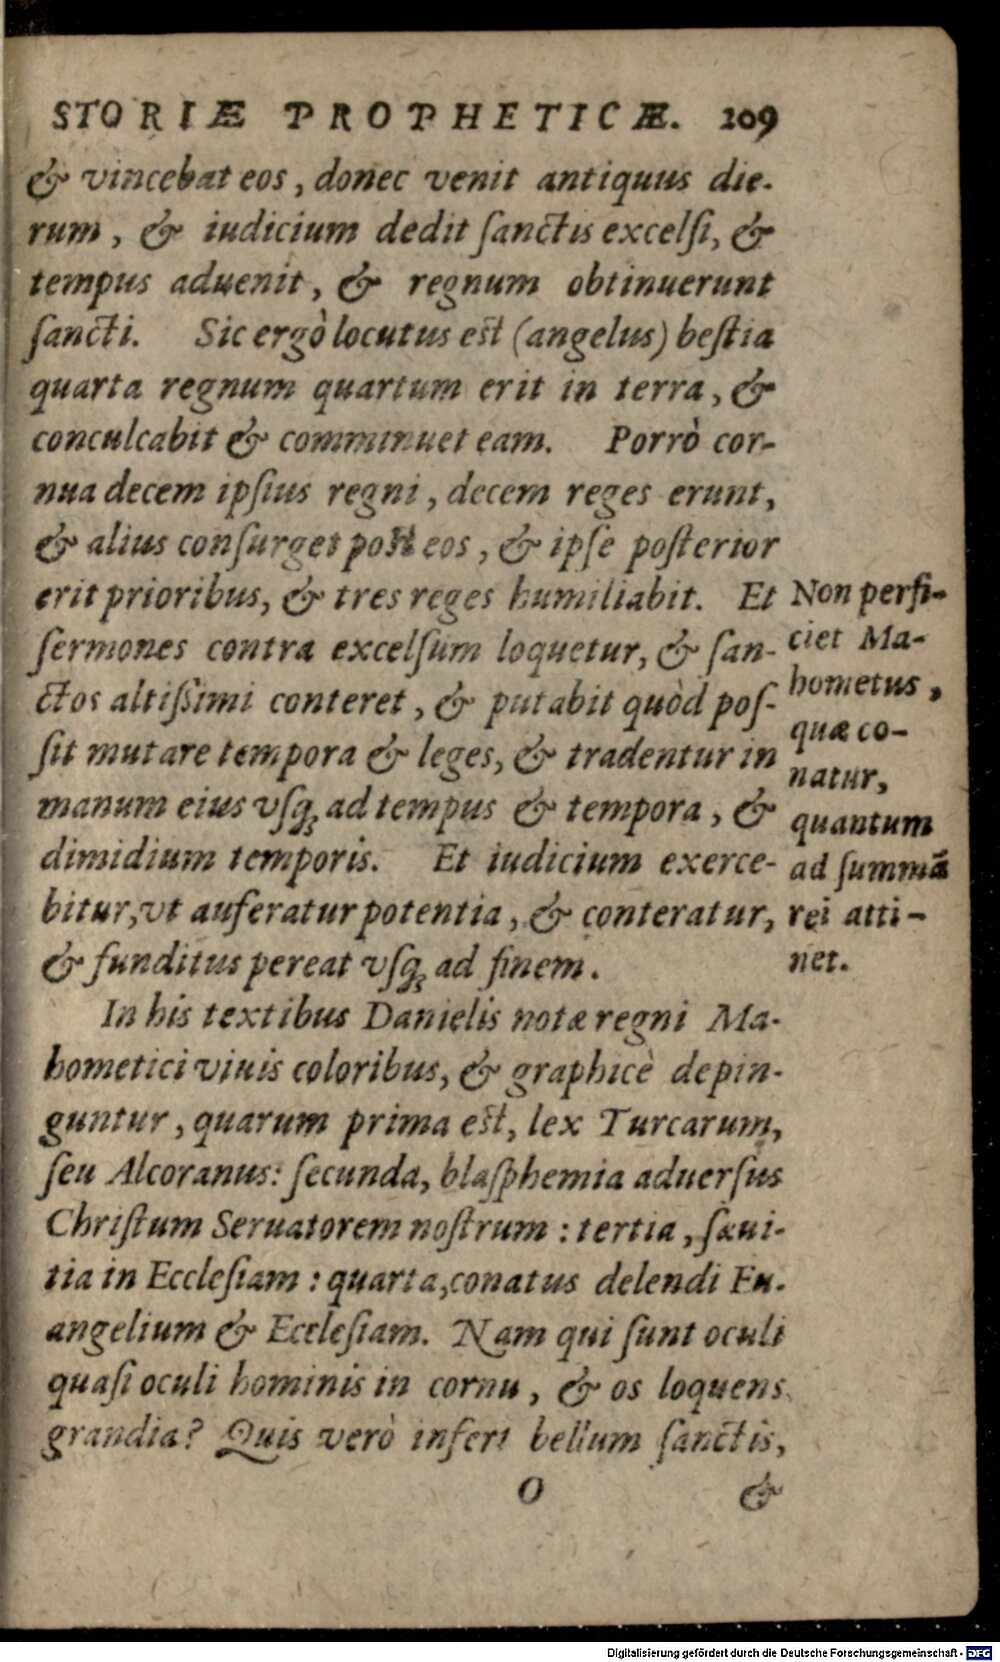 STORIÆ PROPHETICÆ. 209
& vincebat eos, donec venit antiquus die-
rum, & iudicium dedit ſanctis excelſi, &
tempus aduenit, & regnum obtinuerunt
ſancti. Sic ergò locutus eſt (angelus) beſtia
quarta regnum quartum erit in terra, &
conculcabit & comminuet eam. Porrò cor-
nua decem ipſius regni, decem reges erunt,
& alius conſurget poſt eos, & ipſe poſterior
erit prioribus, & tres reges humiliabit. Et
ſermones contra excelſum loquetur, & ſan-
ctos altiſsimi conteret, & putabit quòd poſ-
ſit mutare tempora & leges, & tradentur in
manum eius vſq; ad tempus & tempora, &
dimidium temporis. Et iudicium exerce-
bitur, vt auferatur potentia, & conteratur,
& funditus pereat vſq; ad finem.
Non perfi-
ciet Ma-
hometus,
quæ co-
natur,
quantum
ad ſummã
rei atti-
net.
In his textibus Danielis notæ regni Ma-
hometici viuis coloribus, & graphicè depin-
guntur, quarum prima eſt, lex Turcarum,
ſeu Alcoranus: ſecunda, blaſphemia aduerſus
Chriſtum Seruatorem noſtrum: tertia, ſæui-
tia in Eccleſiam: quarta, conatus delendi Eu-
angelium & Eccleſiam. Nam qui ſunt oculi
quaſi oculi hominis in cornu, & os loquens
grandia? Quis verò infert bellum ſanctis,
O &
Digitalisierung gefördert durch die Deutsche Forschungsgemeinschaft - DFG